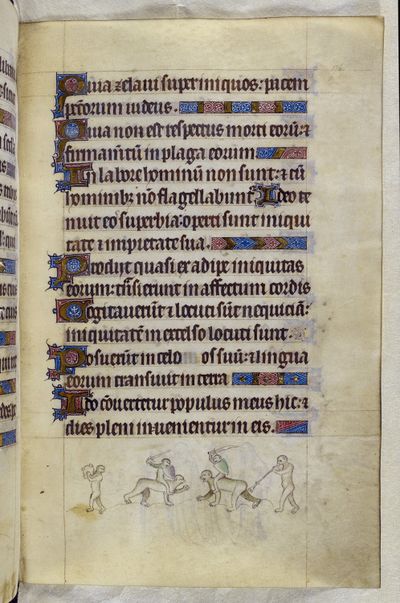 Quia zelaui super iniquos: pacem
pctorum uidens.
Quia non est respectus morti eorū: ⁊
firmamtū in plaga eorum
In labore hominum non sunt: ⁊ cū
hominibꝫ nō flagellabunt Ideo te
nuit eos superbia: operti sunt iniqui
tate ⁊ impietate sua.
Prodijt quasi ex adipe iniquitas
eorum: tͣnsierunt in affectum cordis
Cogitauerūt ⁊ locuti sūt nequiciā:
iniquitatē in excelso locuti sunt.
Posuerūt in celo os suū: ⁊ lingua
eorum transiuit in terra
Ideo cōuertetur populus meus hic: ⁊
dies pleni inuenientur in eis.